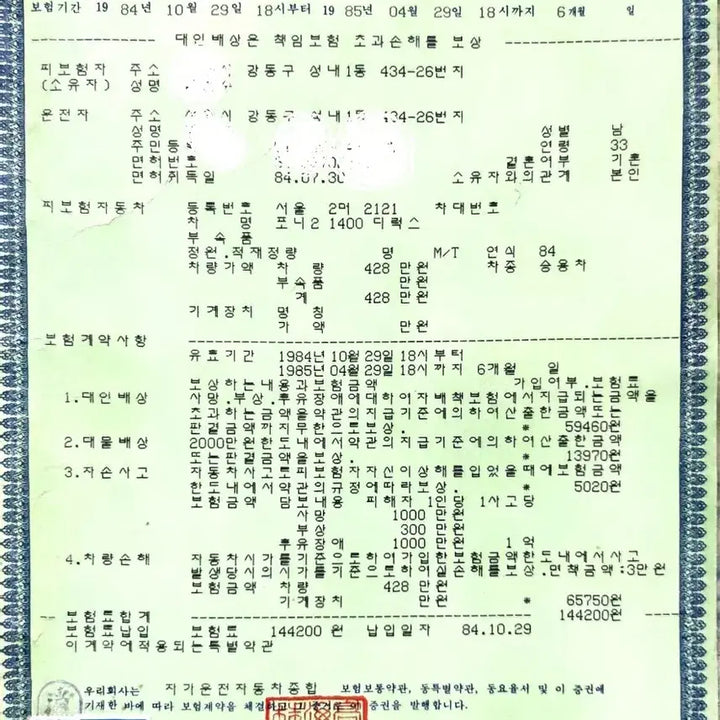 보험기간 19 84년 10월 29일 18시부터 1985년 04월 29일 18시까지 6개월 일
대인배상은 책임보험 초과손해를 보상
피보험자 주소 강동구 성내1동 434-26번지
(소유자) 성명
운전자 주소 강동구 성내1동 434-26번지
성명 성별 남
주민등 연령 33
면허번호 결혼여부 기혼
면허취득일 84.07.30 소유자와의관계 본인
피보험자동차 등록번호 서울 2머 2121 차대번호
차 명 포니2 1400 디럭스
부속품
정원.적재정량 명 M/T 연식 84
차량가액 차 량 428 만원 차종 승용차
부속품 만원
계 428 만원
기계장치 명 칭
가 액 만원
보험계약사항
유효기간 1984년 10월 29일 18시 부터
1985년 04월 29일 18시 까지 6개월 일
보상하는내용과보험금액 가입여부.보험료
1.대인배상 사망.부상.후유장애에대하여자배책보험에서지급되는금액을
초과하는금액을약관의지급기준에의하여산출한금액또는
판결금액까지무한으로보상. * 59460원
2.대물배상 2000만원한도내에서약관의지급기준에의하여산출한금액
또는판결금액을보상. * 13970원
3.자손사고 자동차사고로피보험자자신이상해를입었을때에보험금액
한도내에서약관의규정에따라보상. * 5020원
보험금액 담보내용 피해자 1인당 1사고당
사망 1000 만원
부상 300 만원
후유장애 1000 만원 1 억
4.차량손해 자동차시가를기준으로하여가입한보험금액한도내에서사고
발생당시의시가를기준으로하여실손해를보상.면책금액:3만원
보험금액 차량 428 만원
기계장치 만원 * 65750원
보험료합계 144200원
보험료납입 보험료 144200 원 납입일자 84.10.29
이계약에적용되는특별약관
우리회사는 자가운전자동차종합 보험보통약관, 동특별약관, 동요율서 및 이 증권에
기재한 바에 따라 보험계약을 체결하고 증권을 발행합니다.